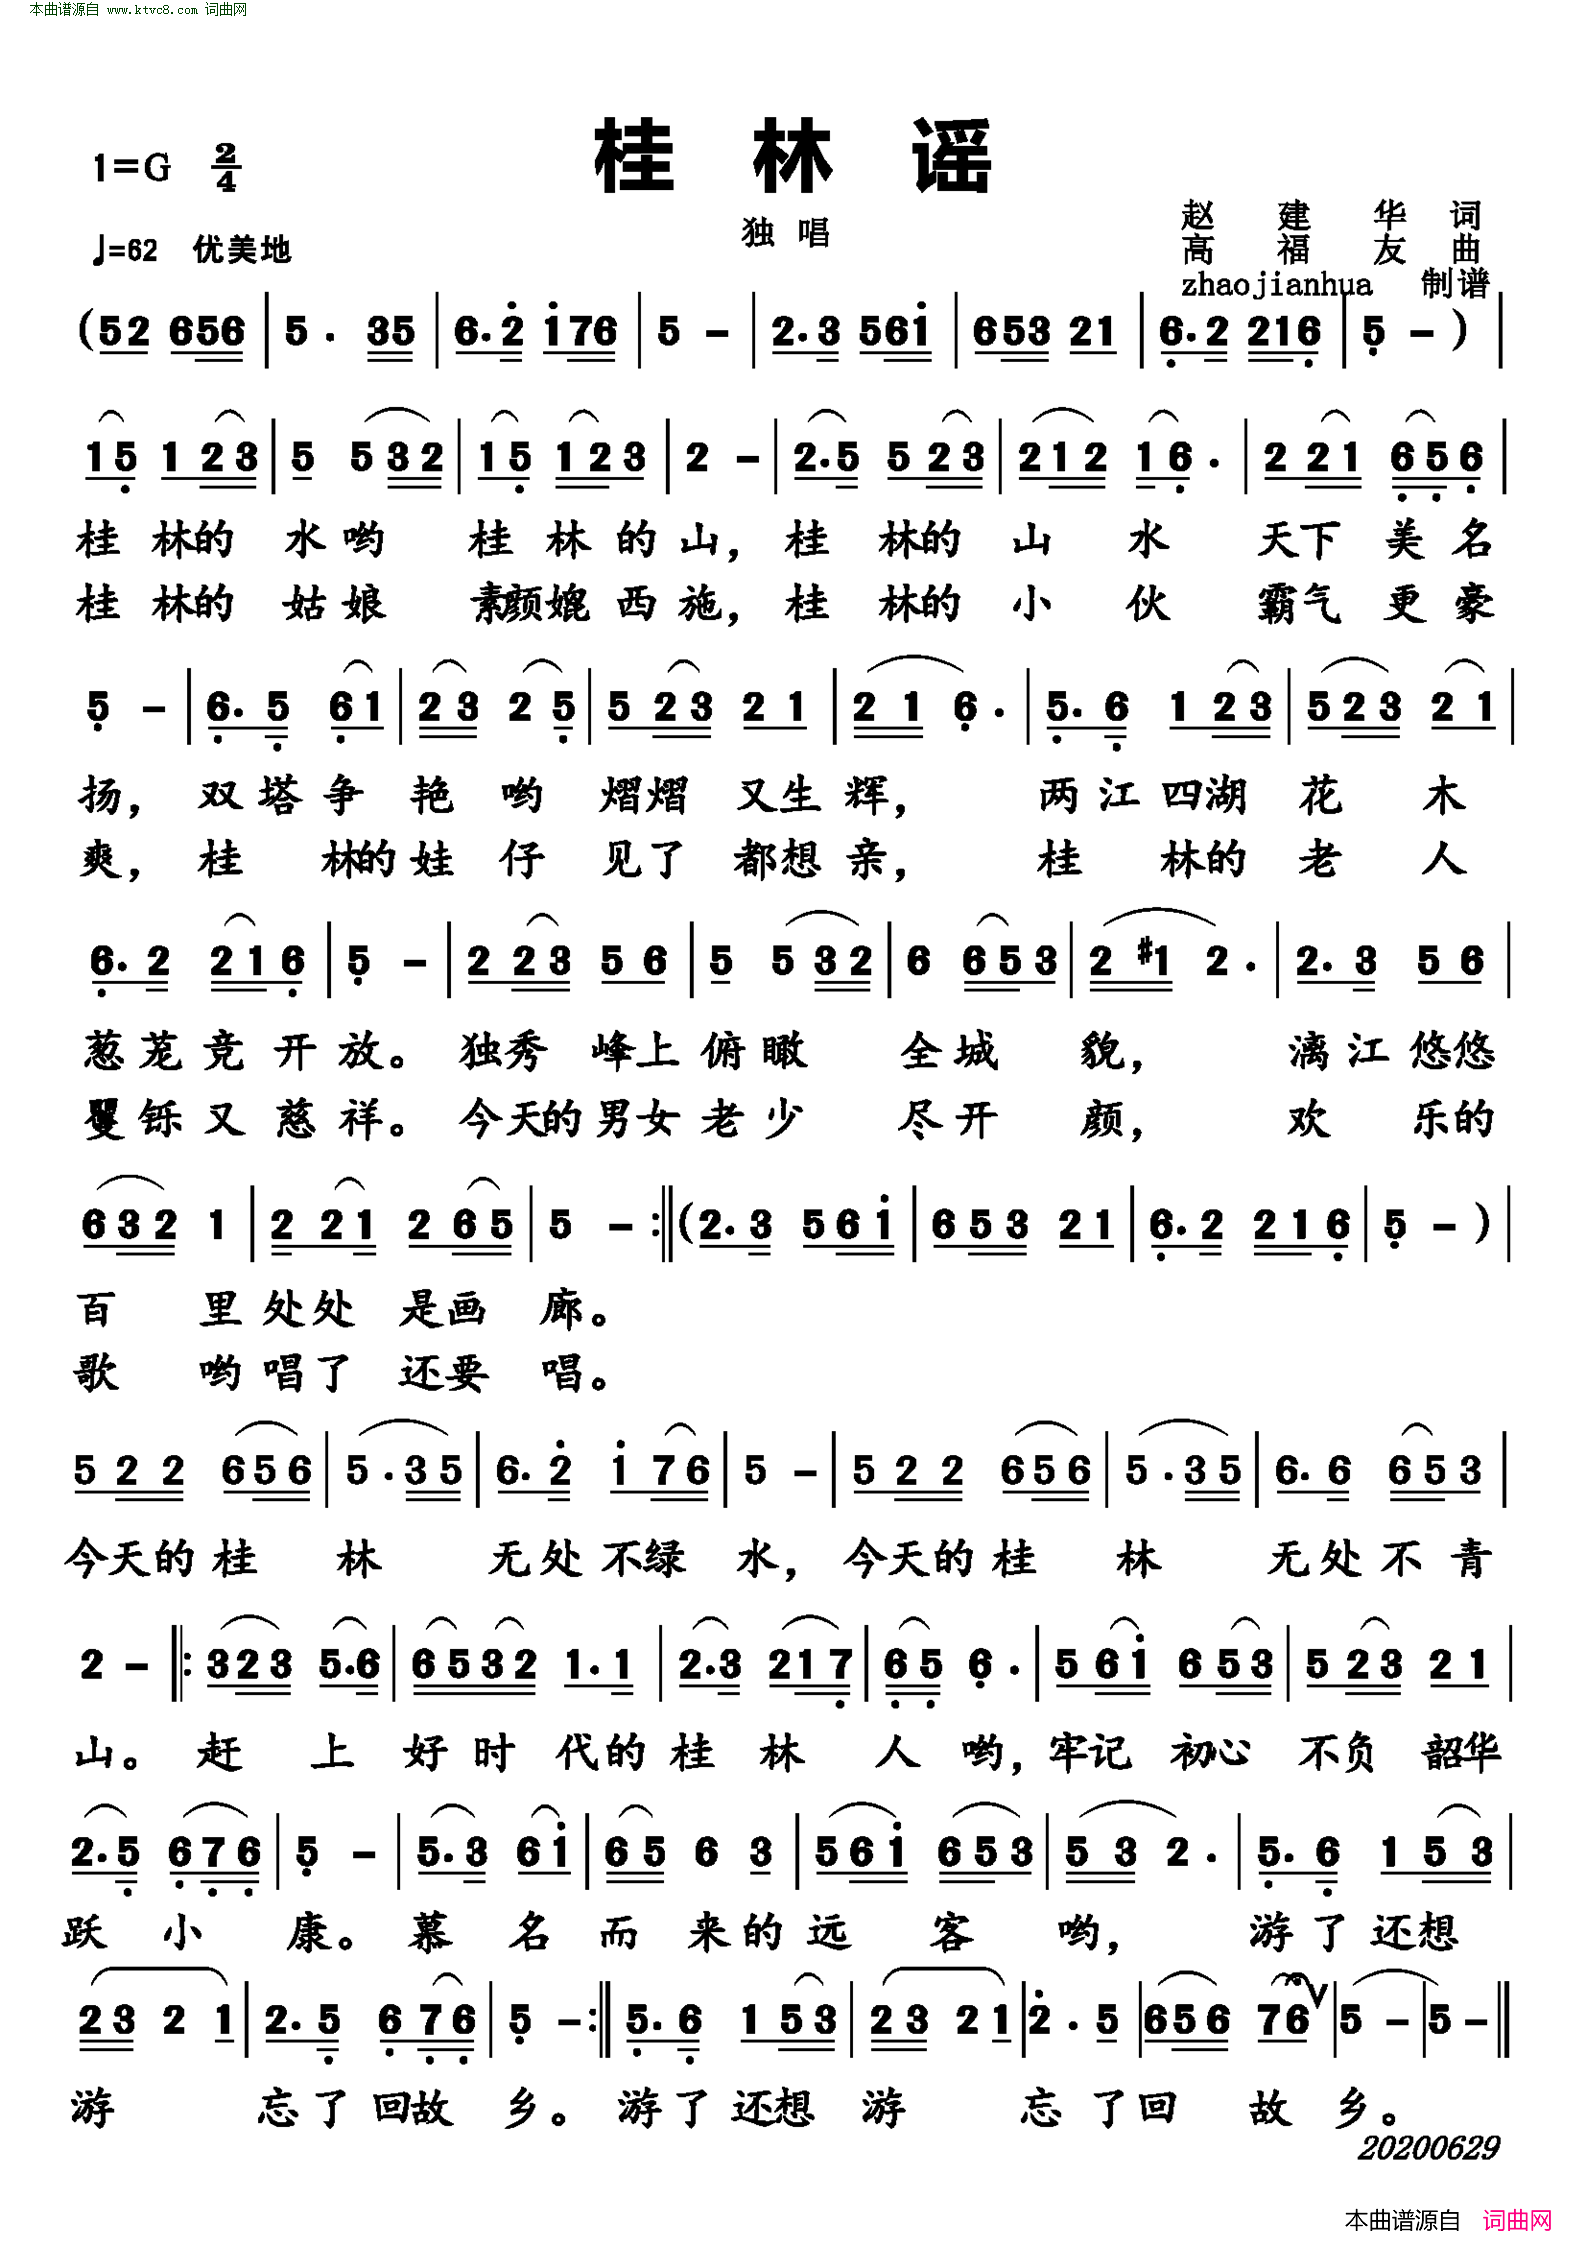 本曲谱源自 www.ktvc8.com 词曲网
桂 林 谣
1=G 2/4
独 唱
赵 建 华 词
♩=62 优美地
高 福 友 曲
zhaojianhua 制谱
(52 656 | 5 . 35 | 6.2̇ 1̇76 | 5 – | 2.3 561̇ | 653 21 | 6̣.2 216̣ | 5̣ – ) |
15̣ 123 | 5 532 | 15̣ 123 | 2 – | 2.5 523 | 212 16̣. | 2 21 6̣5̣6̣ |
桂 林的 水哟 桂 林 的 山, 桂 林的 山 水 天下 美名
桂 林的 姑娘 素颜媲 西 施, 桂 林的 小 伙 霸气 更豪
5̣ – | 6̣.5̣ 6̣1 | 23 25̣ | 523 21 | 21 6̣. | 5̣.6̣ 123 | 523 21 |
扬, 双塔争 艳 哟 熠熠 又生 辉, 两江 四湖 花 木
爽, 桂 林的娃 仔 见了 都想 亲, 桂 林的 老 人
6̣.2 216̣ | 5̣ – | 2 23 56 | 5 532 | 6 653 | 2 #1 2. | 2.3 56 |
葱茏 竞 开 放。 独秀 峰上 俯瞰 全城 貌, 漓江 悠悠
矍铄 又 慈 祥。 今天的 男女 老少 尽开 颜, 欢 乐的
632 1 | 2 21 265 | 5 – :‖ (2.3 561̇ | 653 21 | 6̣.2 216̣ | 5̣ – ) |
百 里 处处 是画 廊。
歌 哟 唱了 还要 唱。
522 656 | 5.35 | 6.2̇ 1̇76 | 5 – | 522 656 | 5.35 | 6.6 653 |
今天的 桂 林 无处 不绿 水, 今天的 桂 林 无处 不青
2 – ‖: 323 5.6 | 6532 1.1 | 2.3 217̣ | 6̣5̣ 6̣. | 561̇ 653 | 523 21 |
山。 赶 上 好 时 代的 桂 林 人 哟, 牢记 初心 不负 韶华
2.5̣ 6̣7̣6̣ | 5̣ – | 5.3 61̇ | 65 6 3 | 561̇ 653 | 53 2. | 5̣.6̣ 153 |
跃 小 康。 慕 名 而 来的 远 客 哟, 游了 还想
23 2 1 | 2.5̣ 6̣7̣6̣ | 5̣ – :‖ 5̣.6̣ 153 | 23 21 | 2̇. 5 | 656 76 ∨ | 5 – | 5 – ‖
游 忘了 回故 乡。 游了 还想 游 忘了回 故 乡。
20200629
本曲谱源自 词曲网